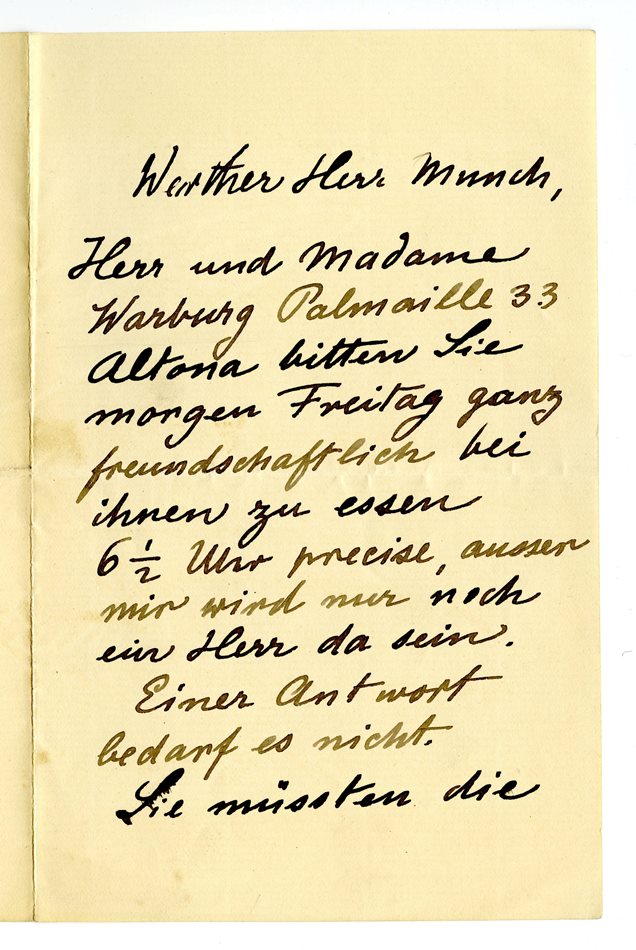 Werther Herr Munch,
Herr und Madame
Warburg Palmaille 33
Altona bitten Sie
morgen Freitag ganz
freundschaftlich bei
ihnen zu essen
6 1/2 Uhr precise, ausser
mir wird nur noch
ein Herr da sein.
Einer Antwort
bedarf es nicht.
Sie müssten die